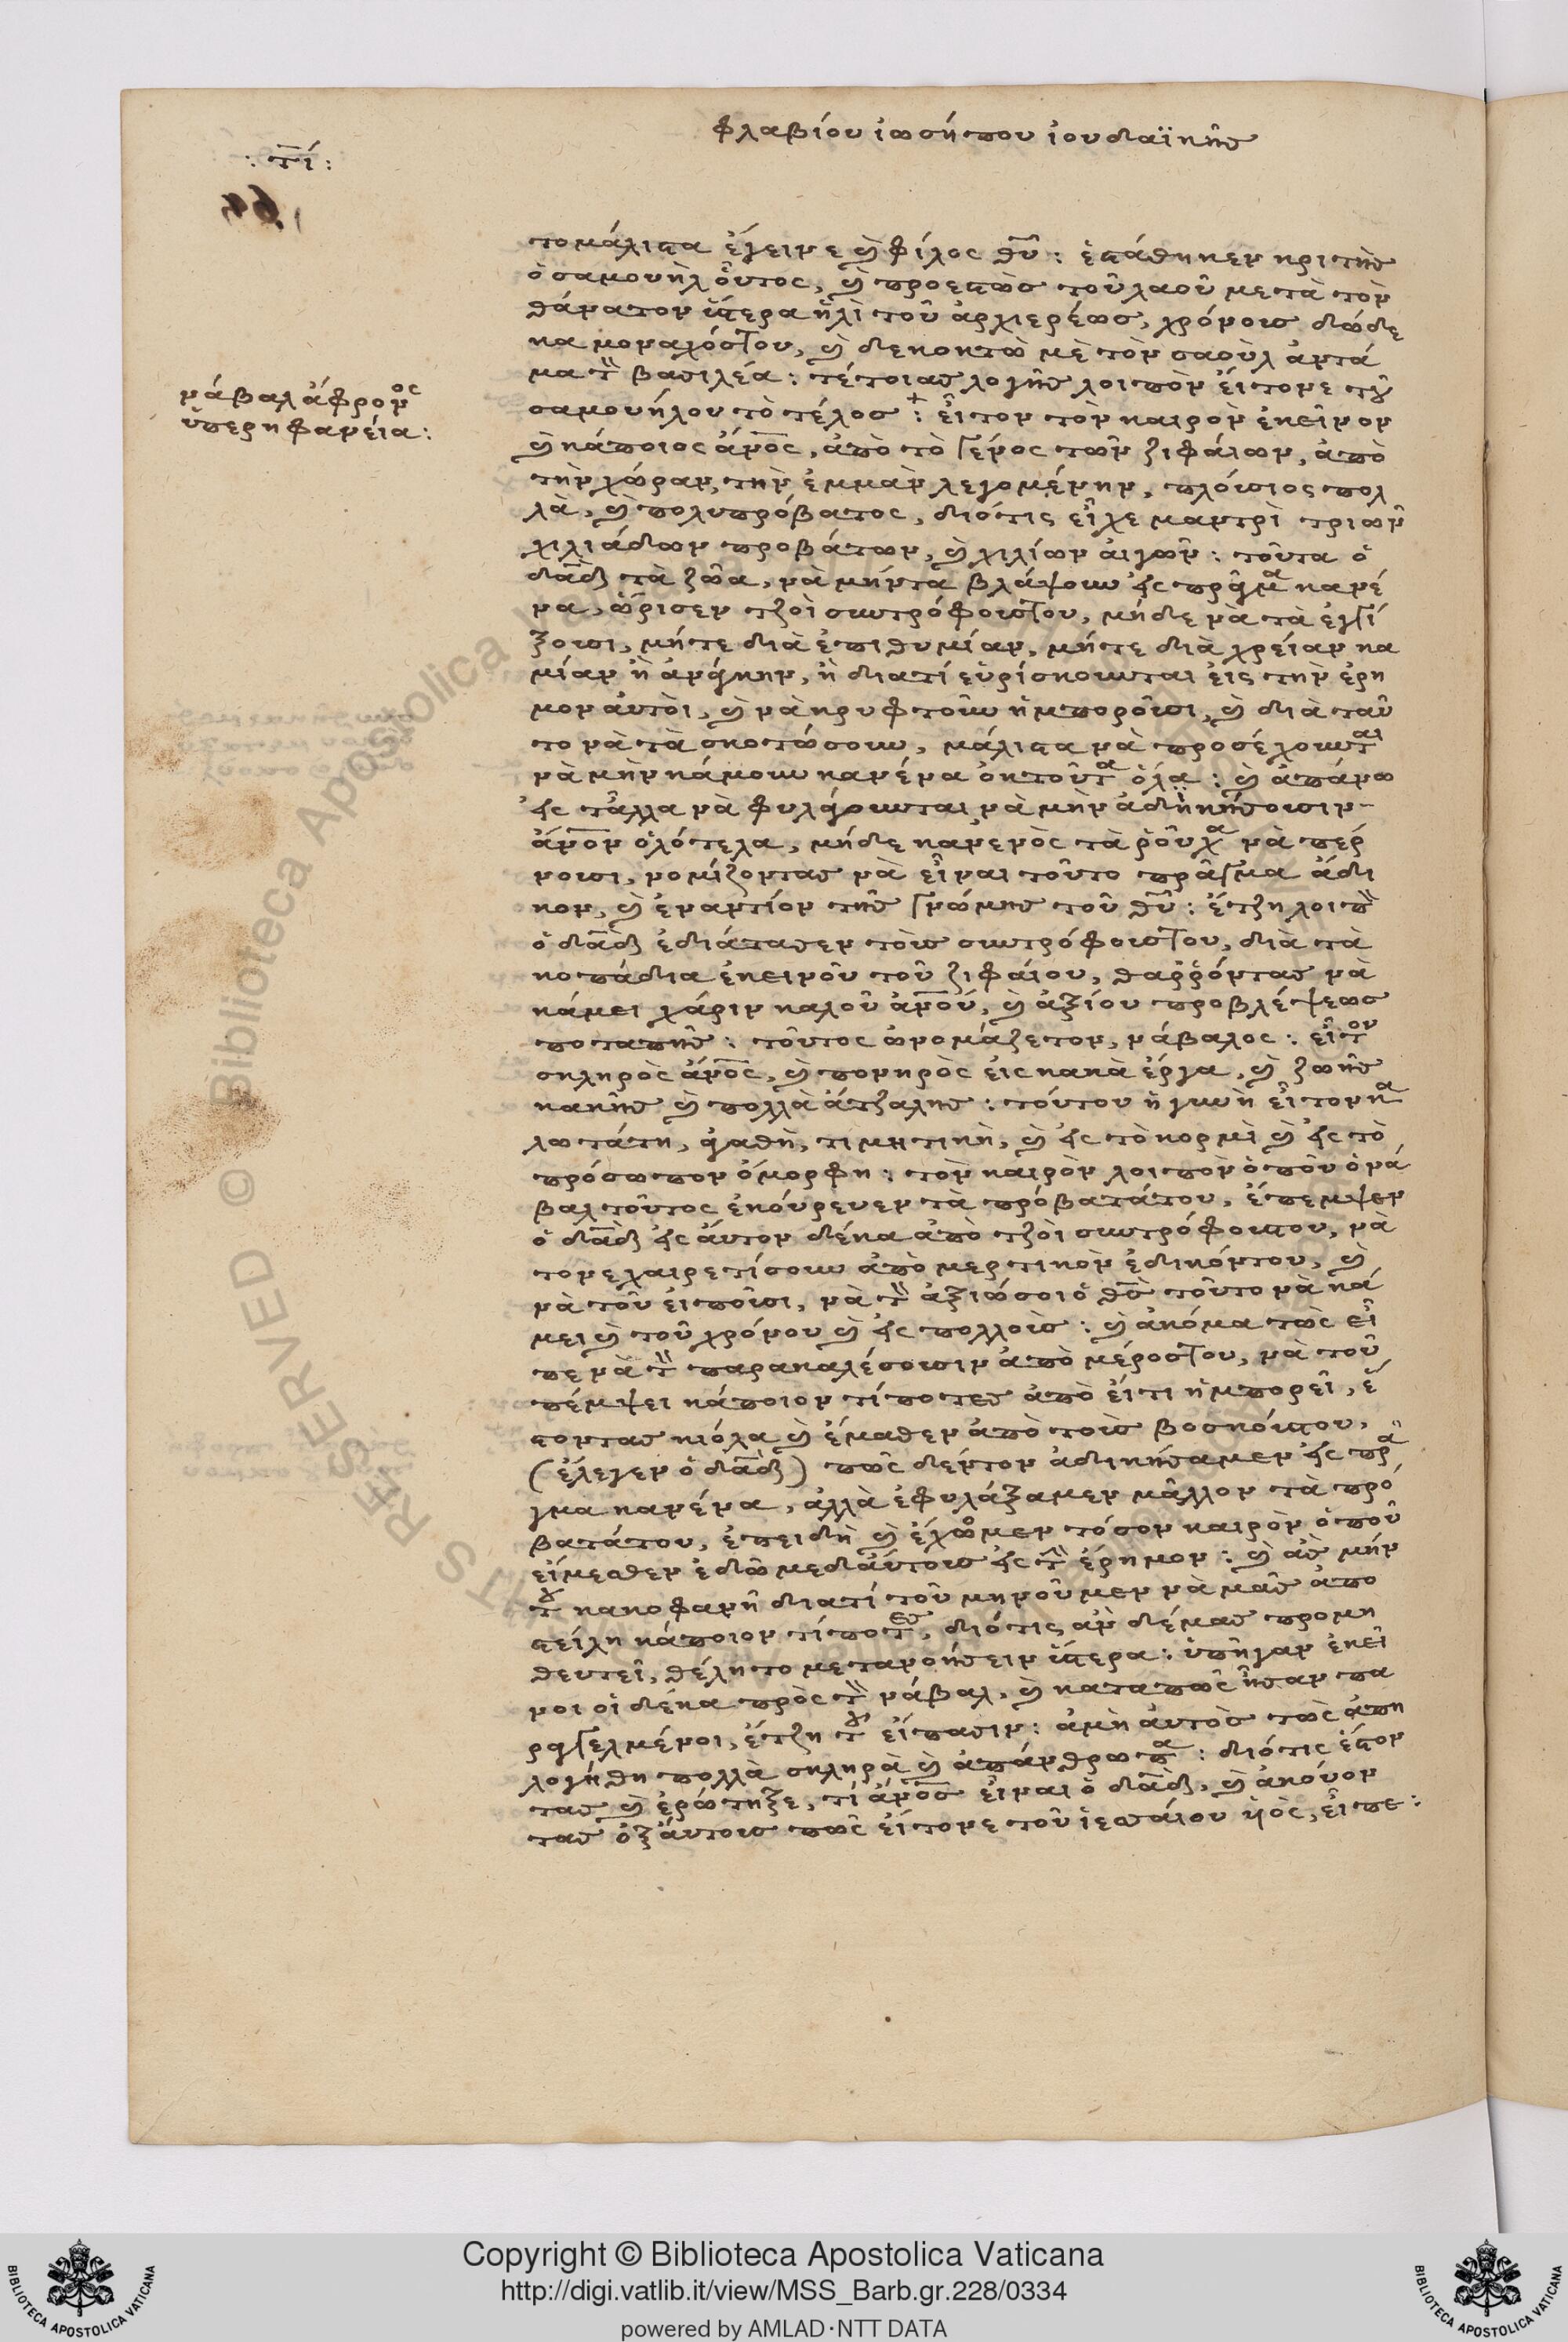 φλαβίου ἰωσήπου ἰουδαϊκῆς
: τί :
νάβαλ ἄφρονος
ὑπερηφανεία :
τομάλιστα ἔγεινε καὶ φίλος θῦ : ἐστάθηκεν κριτὴς
ὁ σαμουὴλ οὗτος, καὶ προεστὼς τοῦ λαοῦ μετὰ τὸν
θάνατον ὕστερα ἠλὶ τοῦ ἀρχιερέως, χρόνους δώδε
κα μοναχόςτου, καὶ δεκοκτὼ μὲ τὸν σαοὺλ ἀντά
μα τὸν βασιλέα : τέτοιας λογῆς λοιπὸν ἔιτονε τοῦ
σαμουήλου τὸ τέλος : εἶτον τὸν καιρὸν ἐκεῖνον
καὶ κάποιος ἄνος, ἀπὸ τὸ γένος τῶν ζιφάιων, ἀπὸ
τὴν χώραν, τὴν ἐμμὰν λεγομένην, πλόυσιος πολ
λὰ, καὶ πολυπρόβατος, διότις εἶχε μαντρὶ τριῶν
χιλιάδων προβάτων, καὶ χιλίων ἀιγῶν : τοῦτα ὁ
δᾶδ τὰ ζῶα, νὰ μήντα βλάψουν εἰς πρᾶγμα κανέ
να, ὥρισεν τζοὶ συντρόφουςτου, μήδε νὰ τὰ ἐγγί
ξουσι, μήτε διὰ ἐπιθυμίαν, μήτε διὰ χρείαν κα
μίαν ἢ ἀνάγκην, ἢ διατί εὑρίσκουνται ἐις τὴν ἔρη
μον ἀυτὸι, καὶ νὰ κρυφτοῦν ἠμποροῦσι, καὶ διὰ ταῦ
το νὰ τὰ σκοτώσουν, μάλιστα νὰ προσέχουνται
νὰ μὴν κάμουν κανένα ὀκτοῦτα ὅλα : καὶ ἀπάνω
εἰς τἆλλα νὰ φυλάγουνται νὰ μὴν ἀδικήσουσιν
ἄνον ὁλότελα, μήδε κανενὸς τὰ ροῦχα νὰ πέρ
νουσι, νομίζοντας νὰ εἶναι τοῦτο πρᾶγμα ἄδι
κον, καὶ ἐναντίον τῆς γνώμης τοῦ θῦ : ἔτζη λοιπὸν
ὁ δᾶδ ἐδιάταζεν τοὺς συντρόφουςτου, διὰ τὰ
κοπάδια ἐκεινοῦ τοῦ ζιφάιου, θαῤῥόντας νὰ
κάμει χάριν καλοῦ ἀνού, καὶ ἀξίου προβλέψεως
ποταπῆς : τοῦτος ὠνομάζετον, νάβαλος : εἶτον
σκληρὸς ἄνος, καὶ πονηρὸς ἐις κακὰ ἔργα, καὶ ζωῆς
κακῆς καὶ πολλὰ ἄτζαλης : τόυτου ἡ γυνὴ εἶτον κα
λωτάτη, ἀγαθὴ, τιμητικὴ, καὶ εἰς τὸ κορμὶ καὶ εἰς τὸ
πρόσωπον ὄμορφη : τὸν καιρὸν λοιπὸν ὁποῦ ὁ νά
βαλ τοῦτος ἐκούρευεν τὰ πρόβατάτου, ἔπεμψεν
ὁ δᾶδ εἰς ἀυτον δέκα ἀπὸ τζοὶ συντρόφουςτου, νὰ
τονε χαιρετίσουν ἀπὸ μερτικὸν ἐδικόντου, καὶ
νὰ τοῦ ἐιποῦσι, νὰ τὸν ἀξιώσοι ὁ θὸς τοῦτο νὰ κά
μει καὶ τοῦ χρόνου καὶ εἰς πολλοὺς : καὶ ἀκόμα τὼς εἶ
πε νὰ τὸν παρακαλέσουσιν ἀπὸ μέροςτου, νὰ τοῦ
πέμψει κάποιον τίποτες ἀπὸ ἔιτι ἠμπορεῖ, ἔ
στοντας κιόλα καὶ ἔμαθεν ἀπὸ τοὺς βοσκόυςτου,
(ἔλεγεν ὁ δᾶδ) πῶς δέντον ἀδικήσαμεν εἰς πρᾶ
γμα κανένα, ἀλλὰ ἐφυλάξαμεν μᾶλλον τὰ πρό
βατάτου, ἐπειδὴ καὶ ἔχωμεν τόσον καιρὸν ὁποῦ
εἴμεσθεν ἐδῶ μεδἀύτους εἰς τὴν ἔρημον : καὶ ἂς μήν
τοῦ κακοφανῆ διατί τοῦ μηνοῦμεν νὰ μᾶς ἀπο
στείλη κάποιον τίποτες, διότις ἂν δέμας προμη
θευτεῖ, θέλη το μετανοήσειν ὕστερα : ὑπῆγαν ἐκεῖ
νοι οἱ δέκα πρὸς τὸν νάβαλ, καὶ καταπῶς ἦσαν πα
ραγγελμένοι, ἔτζη τοῦ εἴπασιν : ἀμὴ ἀυτὸς τὼς ἀπη
λογήθη πολλὰ σκληρὰ καὶ ἀπάνθρωπα : διότις ἔστον
τας καὶ ἐρώτηξε, τί ἄνος εἶναι ὁ δᾶδ, καὶ ἀκόυον
τας ὀξάυτους πῶς ἔιτονε τοῦ ἰεσσάιου ὑιὸς, ἔιπε :
Copyright © Biblioteca Apostolica Vaticana
http://digi.vatlib.it/view/MSS_Barb.gr.228/0334
powered by AMLAD·NTT DATA
BIBLIOTECA APOSTOLICA VATICANA
BIBLIOTECA APOSTOLICA VATICANA